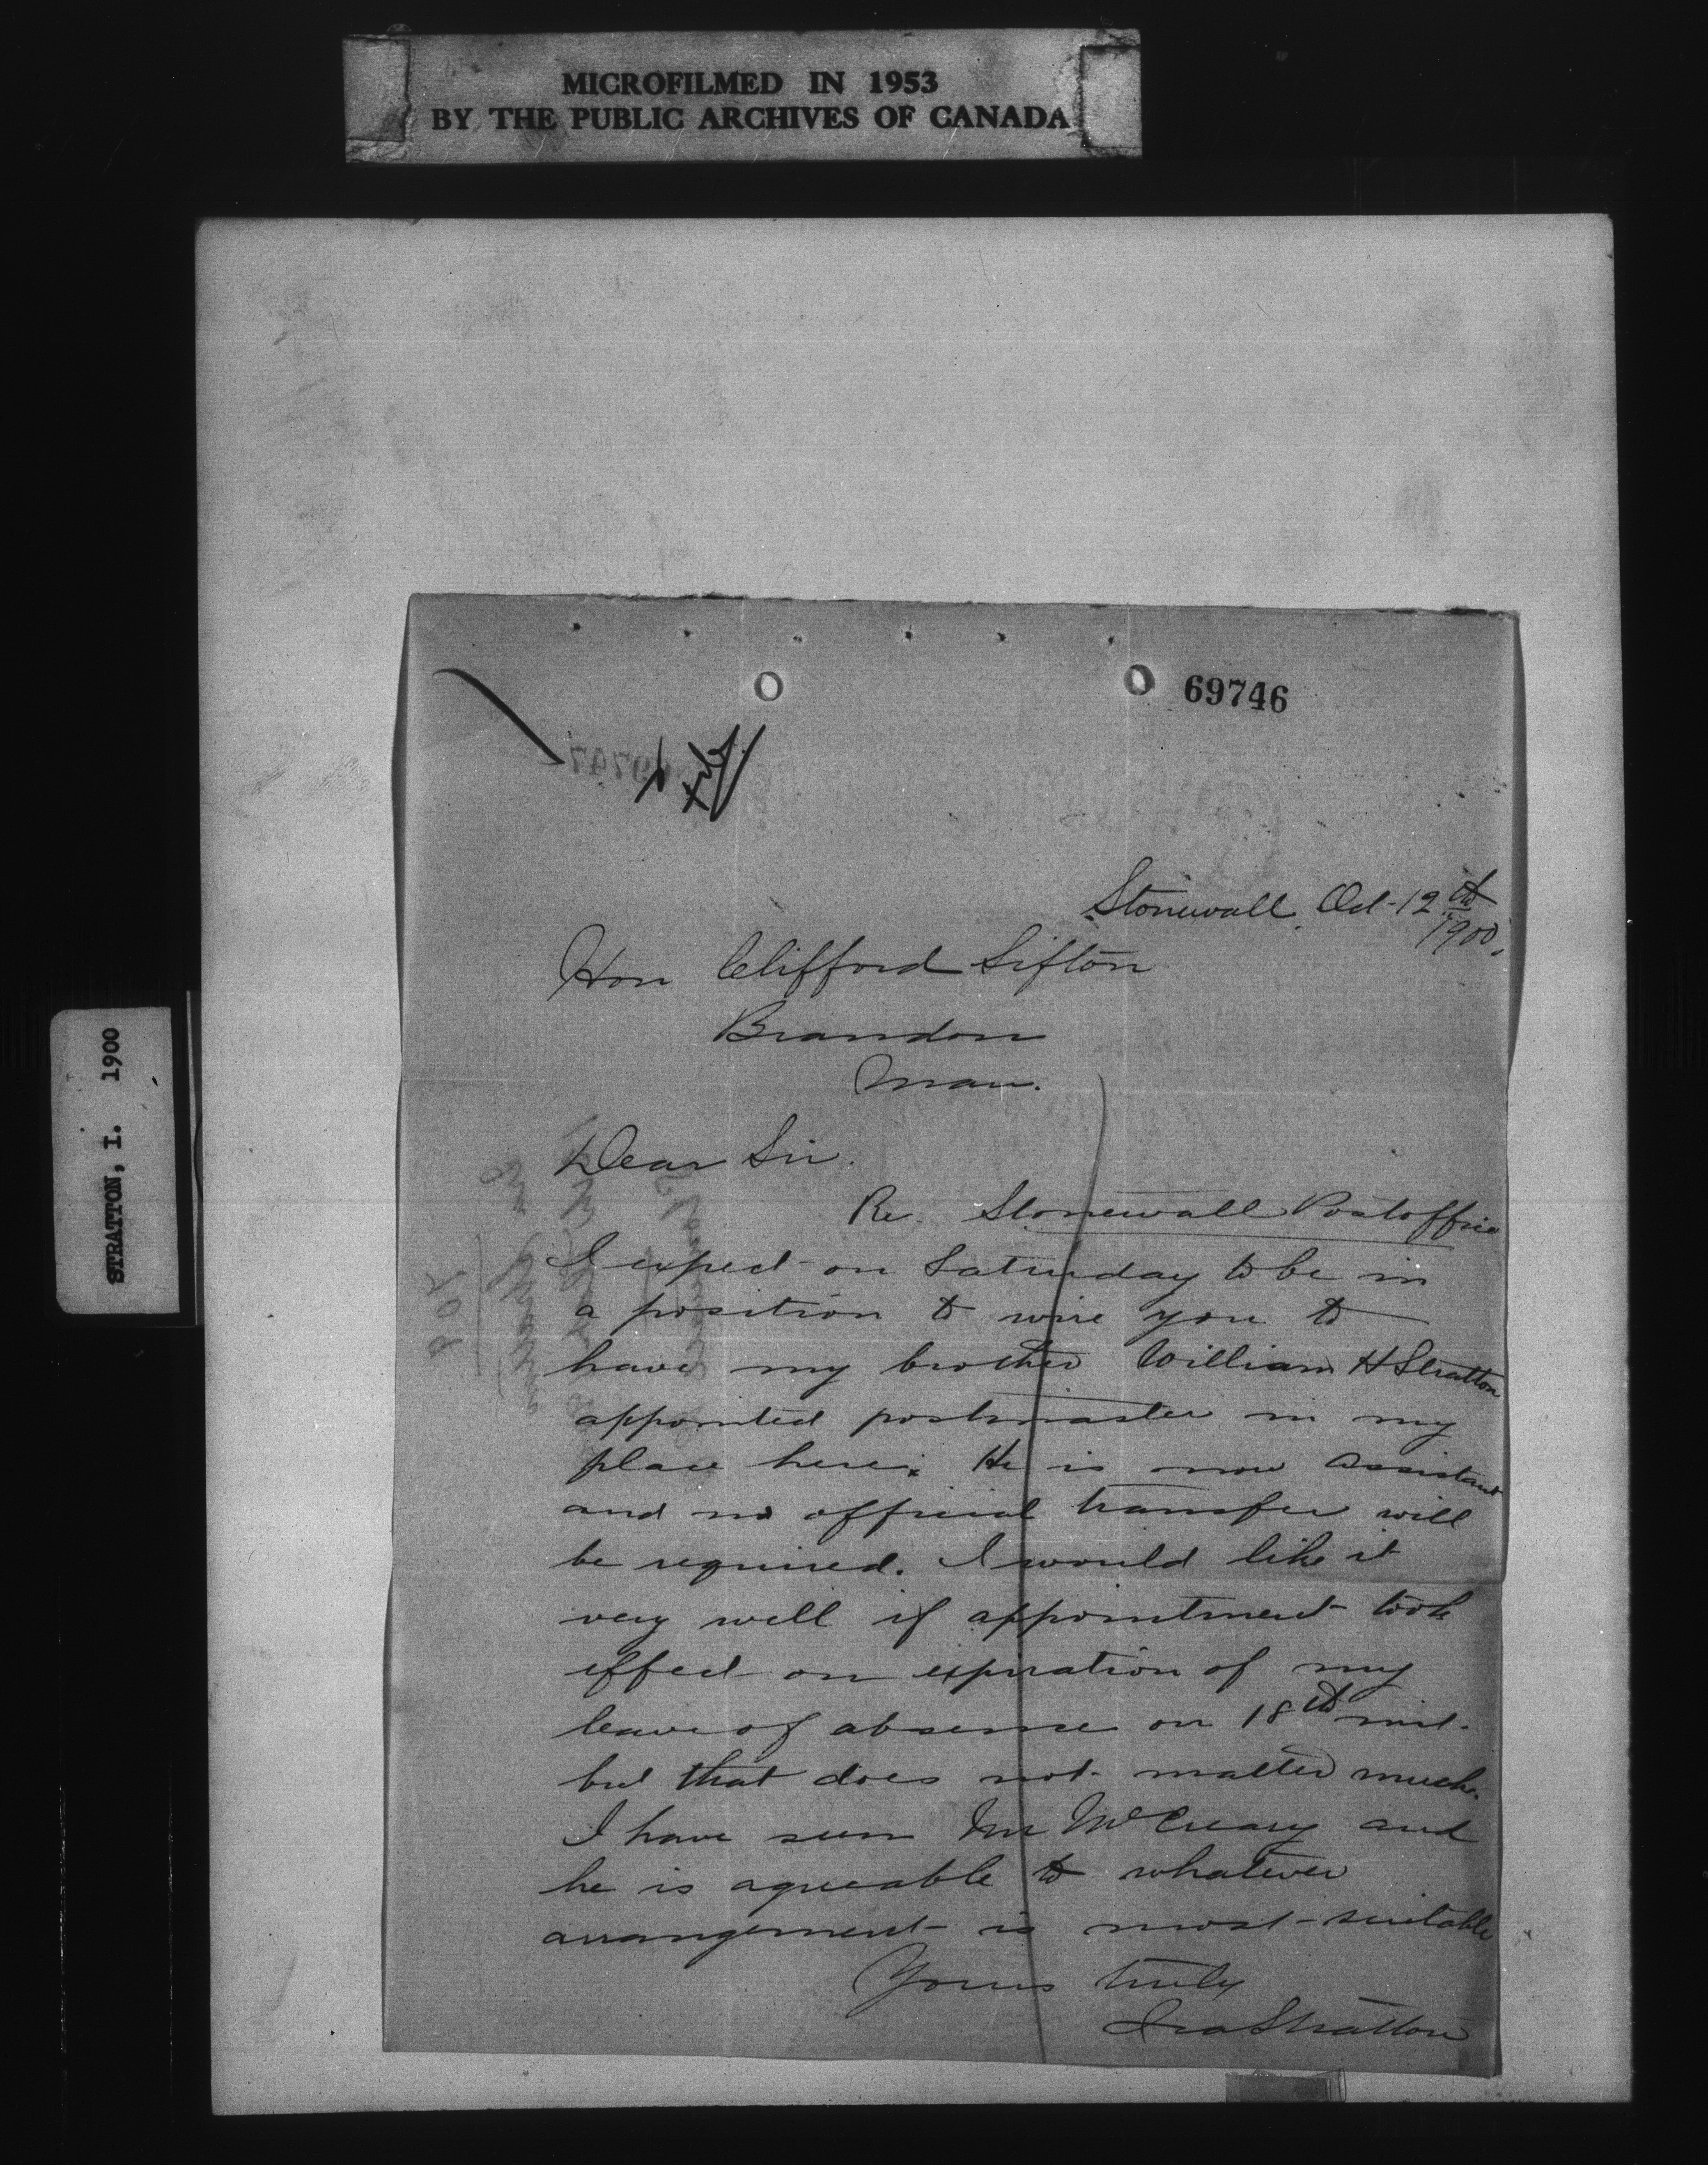 MICROFILMED IN 1953
BY THE PUBLIC ARCHIVES OF CANADA
STRATTON, I. 1900
69746
69747
Stonewall Oct-12th
1900.
Hon Clifford Sifton
Brandon
Man.
Dear Sir.
Re. Stonewall Postoffice
I expect on Saturday to be in
a position to wire you to
have my brother William H Stratton
appointed postmaster in my
place here. He is now assistant
and no official transfer will
be required. I would like it
very well if appointment took
effect on expiration of my
leave of absence on 18th inst.
but that does not matter much.
I have seen Mr McCreary and
he is agreeable to whatever
arrangement is most suitable
Yours truly
Ira Stratton